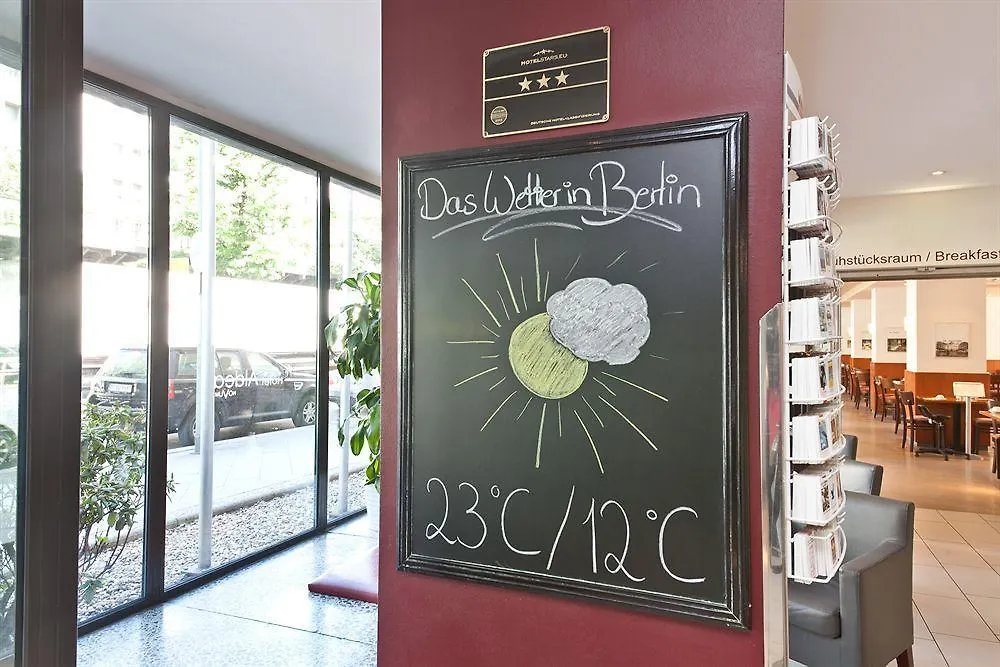 HOTELSTARS.EU
DEUTSCHE HOTELKLASSIFIZIERUNG
Das Wetter in Berlin
23°C / 12°C
ühstücksraum / Breakfas
Hotel Aldea
NOVUM